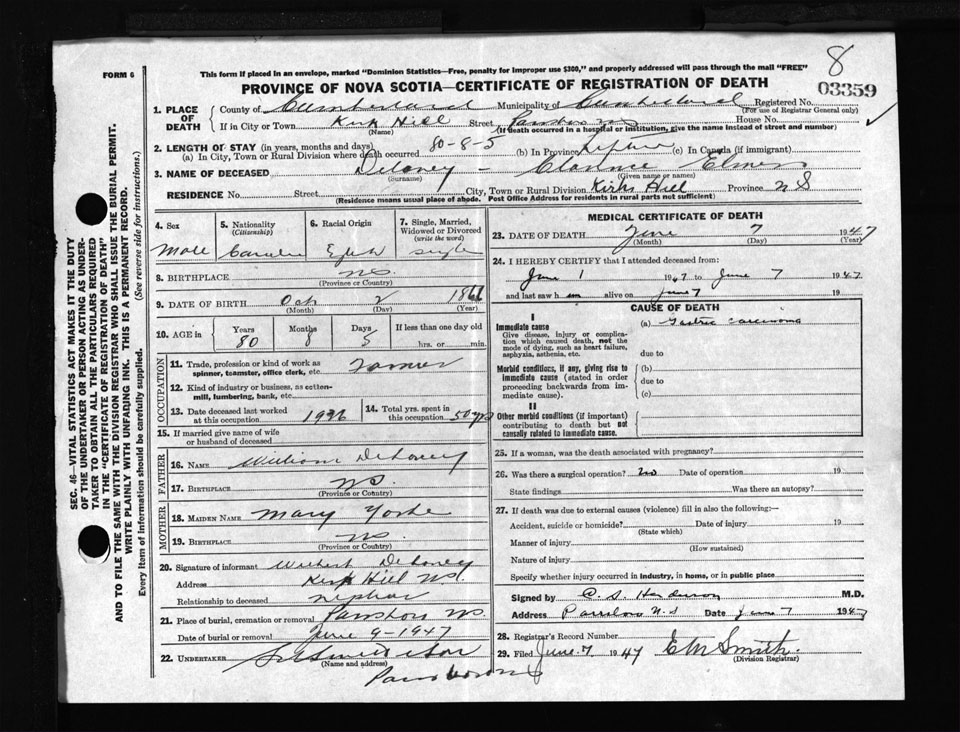 8
FORM 6
This form if placed in an envelope, marked "Dominion Statistics—Free, penalty for improper use $300," and properly addressed will pass through the mail "FREE"
PROVINCE OF NOVA SCOTIA—CERTIFICATE OF REGISTRATION OF DEATH
03359
1. PLACE OF DEATH County of Cumberland Municipality of Cumberland Registered No.
(For use of Registrar General only)
If in City or Town Kirk Hill Street House No.
(Name) (If death occurred in a hospital or institution, give the name instead of street and number)
2. LENGTH OF STAY (in years, months and days)
(a) In City, Town or Rural Division where death occurred 80-8-5 (b) In Province (c) In Canada (if immigrant)
3. NAME OF DECEASED Delaney - Clarence Elmer
(Surname) (Given name or names)
RESIDENCE No. Street City, Town or Rural Division Kirks Hill Province N S
(Residence means usual place of abode. Post Office Address for residents in rural parts not sufficient)
4. Sex 5. Nationality (Citizenship) 6. Racial Origin 7. Single, Married, Widowed or Divorced (write the word)
Male single
8. BIRTHPLACE NS.
(Province or Country)
9. DATE OF BIRTH Oct 2
(Month) (Day) (Year)
10. AGE in Years Months Days If less than one day old
80 8 5 hrs. or min.
OCCUPATION
11. Trade, profession or kind of work as spinner, teamster, office clerk, etc. Farmer
12. Kind of industry or business, as cotton-mill, lumbering, bank, etc.
13. Date deceased last worked at this occupation 14. Total yrs. spent in this occupation 50 yrs
15. If married give name of wife or husband of deceased
FATHER
16. NAME William Delaney
17. BIRTHPLACE NS.
(Province or Country)
MOTHER
18. MAIDEN NAME Mary Yorke
19. BIRTHPLACE NS
(Province or Country)
20. Signature of informant Delaney
Address Kirk Hill NS.
Relationship to deceased Nephew
21. Place of burial, cremation or removal Parrsboro NS.
Date of burial or removal June 9-1947
22. UNDERTAKER
(Name and address)
Parrsboro NS
MEDICAL CERTIFICATE OF DEATH
23. DATE OF DEATH June 7 1947
(Month) (Day) (Year)
24. I HEREBY CERTIFY that I attended deceased from:
June 1 1947 to June 7 1947
and last saw him alive on June 7 19
CAUSE OF DEATH
I
Immediate cause (a) Gastric carcinoma
Give disease, injury or complication which caused death, not the mode of dying, such as heart failure, asphyxia, asthenia, etc.
due to
Morbid conditions, if any, giving rise to immediate cause (stated in order proceeding backwards from immediate cause).
(b)
due to
(c)
II
Other morbid conditions (if important) contributing to death but not causally related to immediate cause.
25. If a woman, was the death associated with pregnancy?
26. Was there a surgical operation? No Date of operation 19
State findings Was there an autopsy?
27. If death was due to external causes (violence) fill in also the following:—
Accident, suicide or homicide? Date of injury 19
(State which)
Manner of injury
(How sustained)
Nature of injury
Specify whether injury occurred in industry, in home, or in public place
Signed by C. S. Henderson M.D.
Address Parrsboro N.S Date June 7 1947
28. Registrar's Record Number
29. Filed June 7 1947 E M Smith
(Division Registrar)
SEC. 46—VITAL STATISTICS ACT MAKES IT THE DUTY OF THE UNDERTAKER OR PERSON ACTING AS UNDERTAKER TO OBTAIN ALL THE PARTICULARS REQUIRED IN THE "CERTIFICATE OF REGISTRATION OF DEATH" AND TO FILE THE SAME WITH THE DIVISION REGISTRAR WHO SHALL ISSUE THE BURIAL PERMIT.
WRITE PLAINLY WITH UNFADING INK. THIS IS A PERMANENT RECORD.
Every item of information should be carefully supplied. (See reverse side for instructions.)